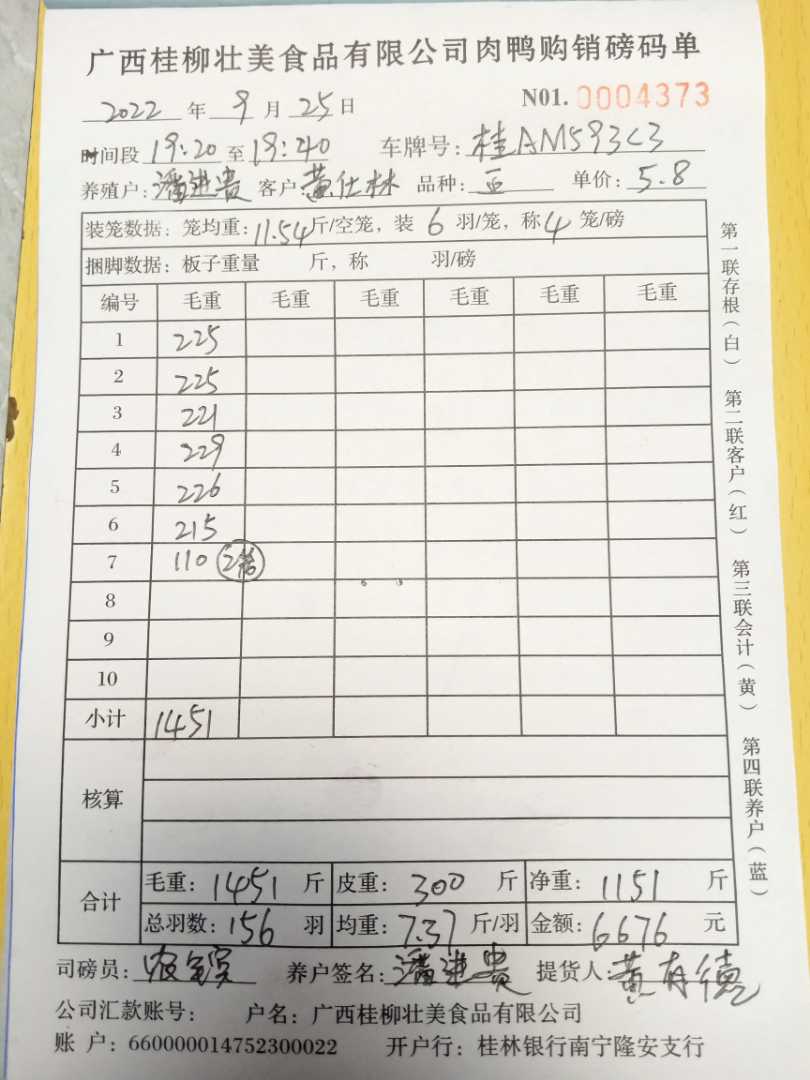 广西桂柳壮美食品有限公司肉鸭购销磅码单
2022 年 9 月 25 日 N01. 0004373
时间段 19:20 至 19:40 车牌号: 桂AM593C3
养殖户: 潘进贵 客户: 黄仕林 品种: 单价: 5.8
装笼数据: 笼均重: 11.54 斤/空笼, 装 6 羽/笼, 称 4 笼/磅
捆脚数据: 板子重量 斤, 称 羽/磅
编号 毛重 毛重 毛重 毛重 毛重 毛重
1 225
2 225
3 221
4 229
5 226
6 215
7 110 2笼
8
9
10
小计 1451
核算
合计 毛重: 1451 斤 皮重: 300 斤 净重: 1151 斤
总羽数: 156 羽 均重: 7.37 斤/羽 金额: 6676 元
司磅员: 养户签名: 潘进贵 提货人: 黄有德
公司汇款账号: 户名: 广西桂柳壮美食品有限公司
账 户: 660000014752300022 开户行: 桂林银行南宁隆安支行
第一联存根(白) 第二联客户(红) 第三联会计(黄) 第四联养户(蓝)